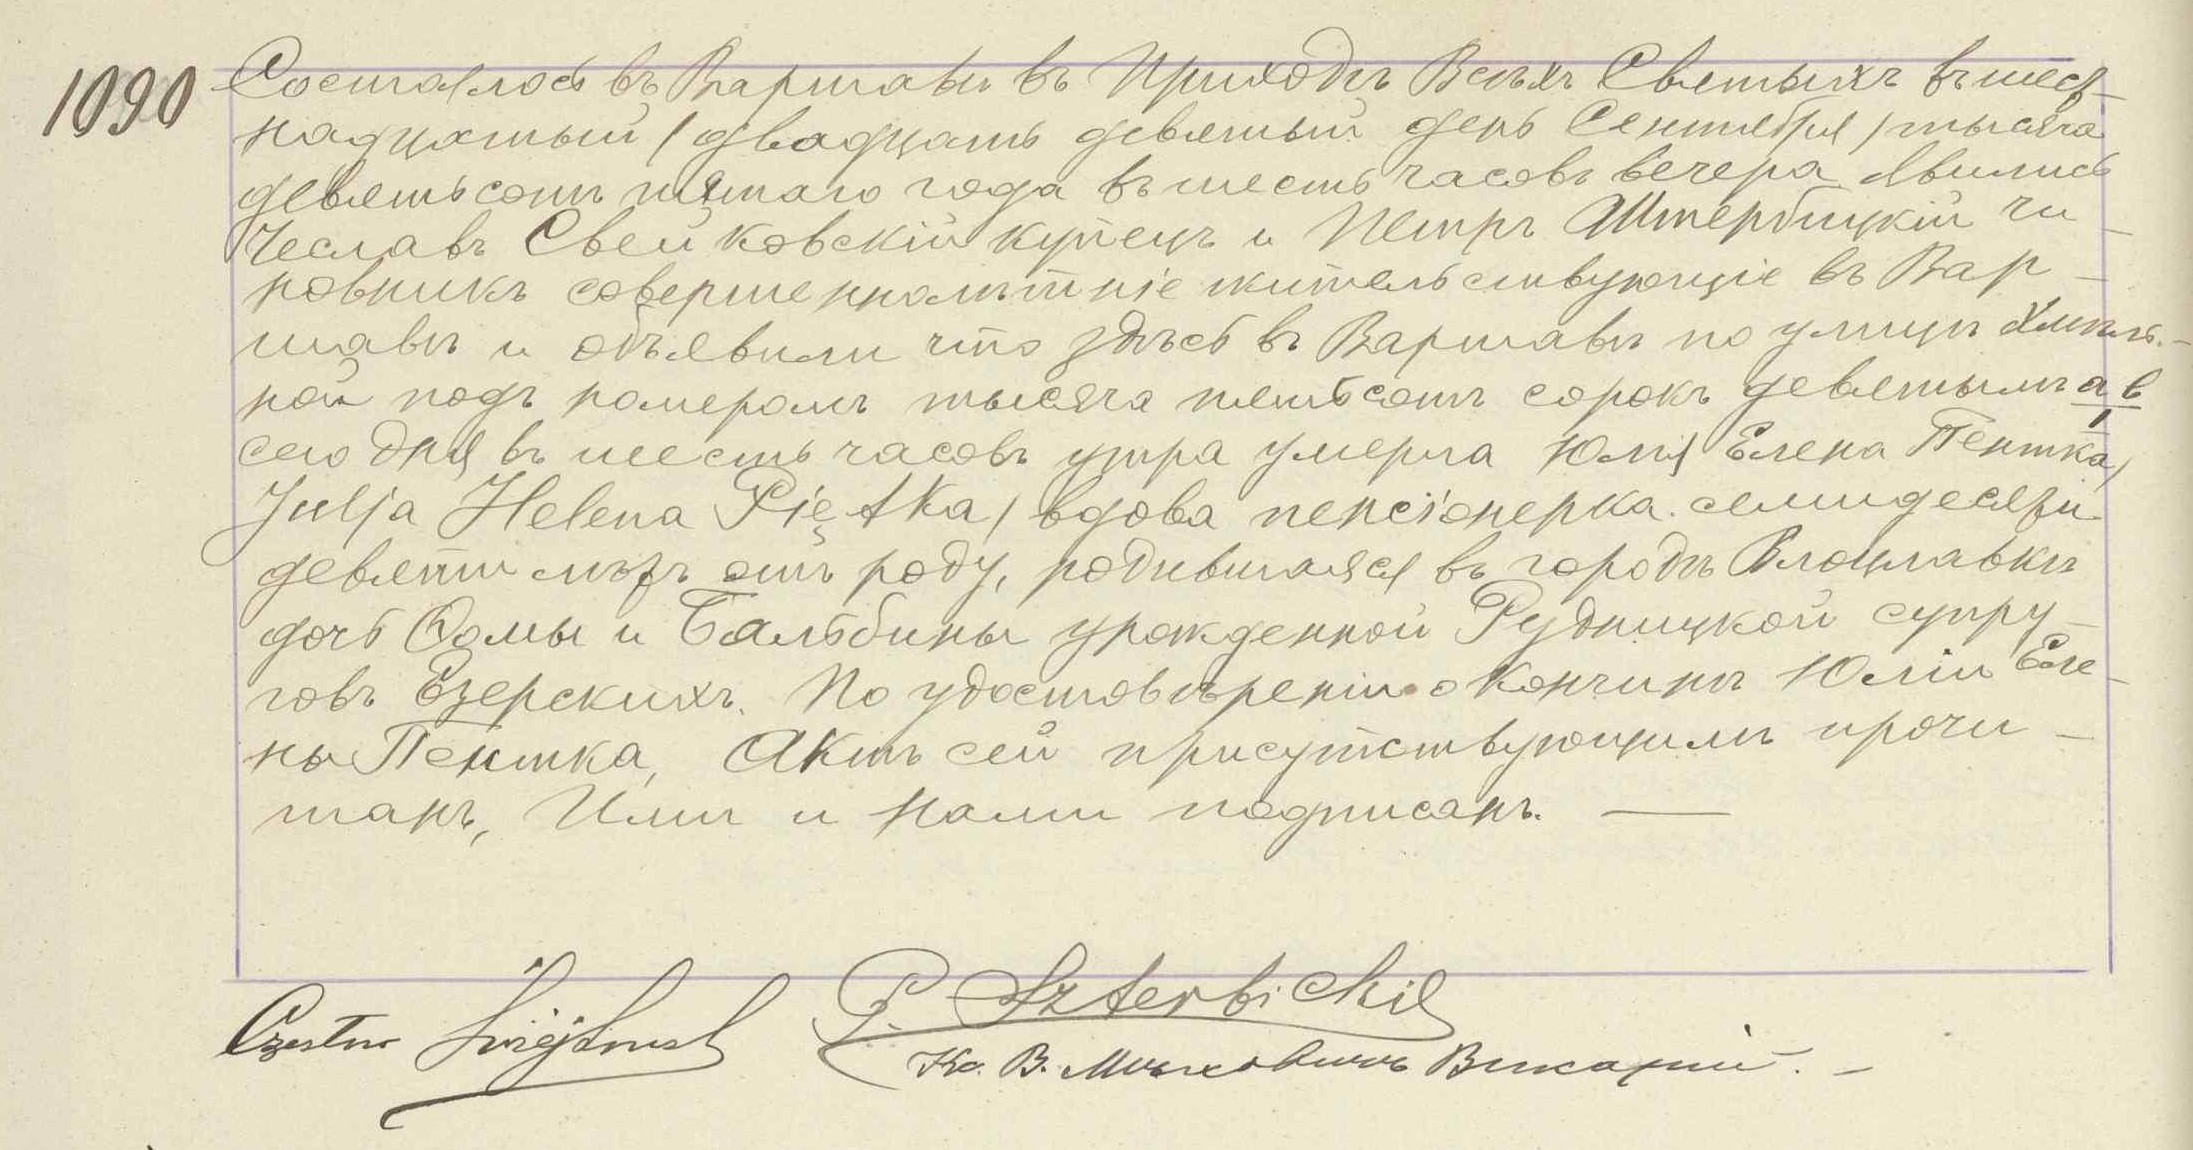 1090
Состоялось въ Варшавѣ въ Приходѣ Всѣхъ Святыхъ въ шест-
надцатый / двадцать девятый день Сентября / тысяча
девятьсотъ пятаго года въ шесть часовъ вечера. Явились
Чеславъ Свейковскій купецъ и Петръ Штербицкій чи-
новникъ совершеннолѣтніе жительствующіе въ Вар-
шавѣ и объявили что здѣсь въ Варшавѣ по улицѣ Хмѣль-
ной подъ номеромъ тысяча пятьсотъ сорокъ девятымъ а в
сего дня въ шесть часовъ утра умерла Юлія Елена Пентка /
Julja Helena Piętka / вдова пенсіонерка. семидесяти
девяти лѣтъ отъ роду, родившаяся въ городѣ Влоцлавкѣ
дочь Ѳомы и Бальбины урожденной Рудницкой супру-
говъ Езерскихъ. По удостовѣреніи о кончинѣ Юліи Еле-
ны Пентка, Актъ сей присутствующимъ прочи-
танъ, Ими и Нами подписанъ.
Czesław
P. Szterbicki
Кс. В. Викарій.